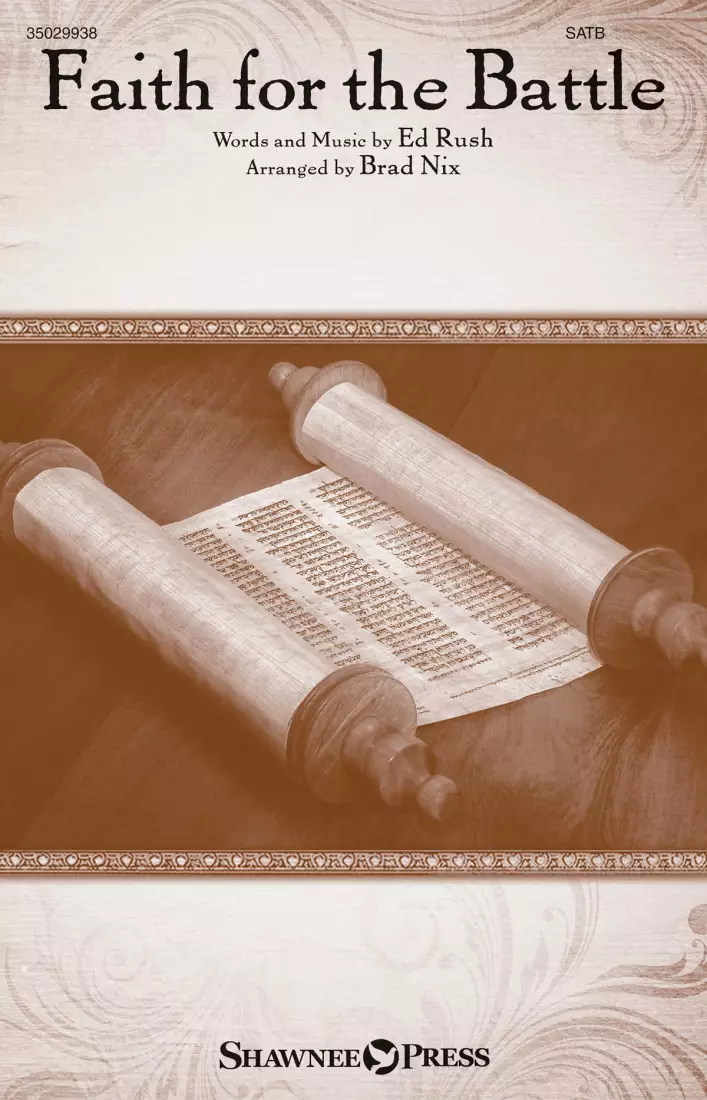 35029938 SATB
Faith for the Battle
Words and Music by Ed Rush
Arranged by Brad Nix
SHAWNEE PRESS